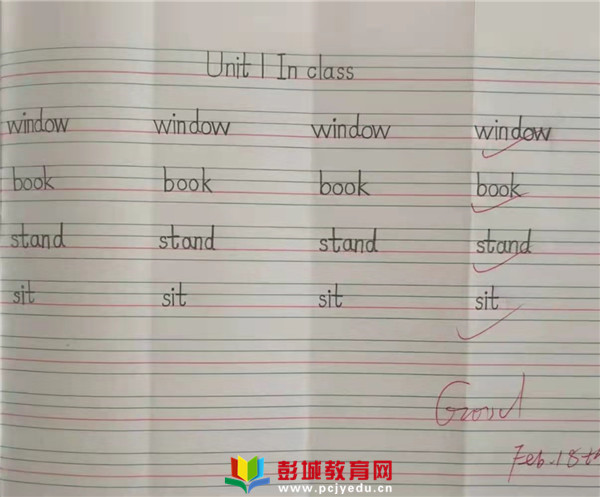 Unit 1 In class
window window window window
book book book book
stand stand stand stand
sit sit sit sit
Good
Feb.18th
彭城教育网
www.pcjyedu.cn